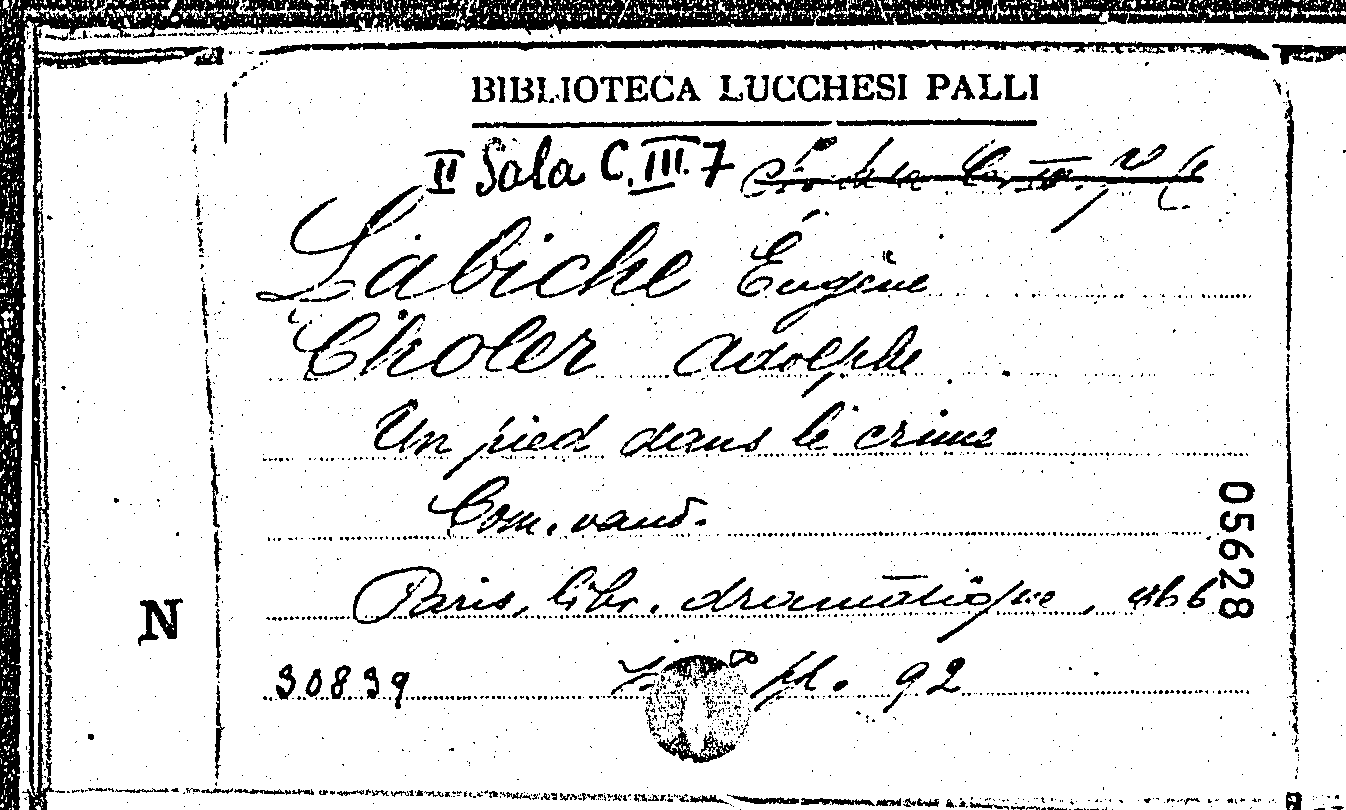 BIBLIOTECA LUCCHESI PALLI
II Sala C. III. 7
Labiche Eugène
Choler Adolphe
Un pied dans le crime
Com. vaud.
Paris, libr. dramatique, 1866
05628
N
30839 pp. 92